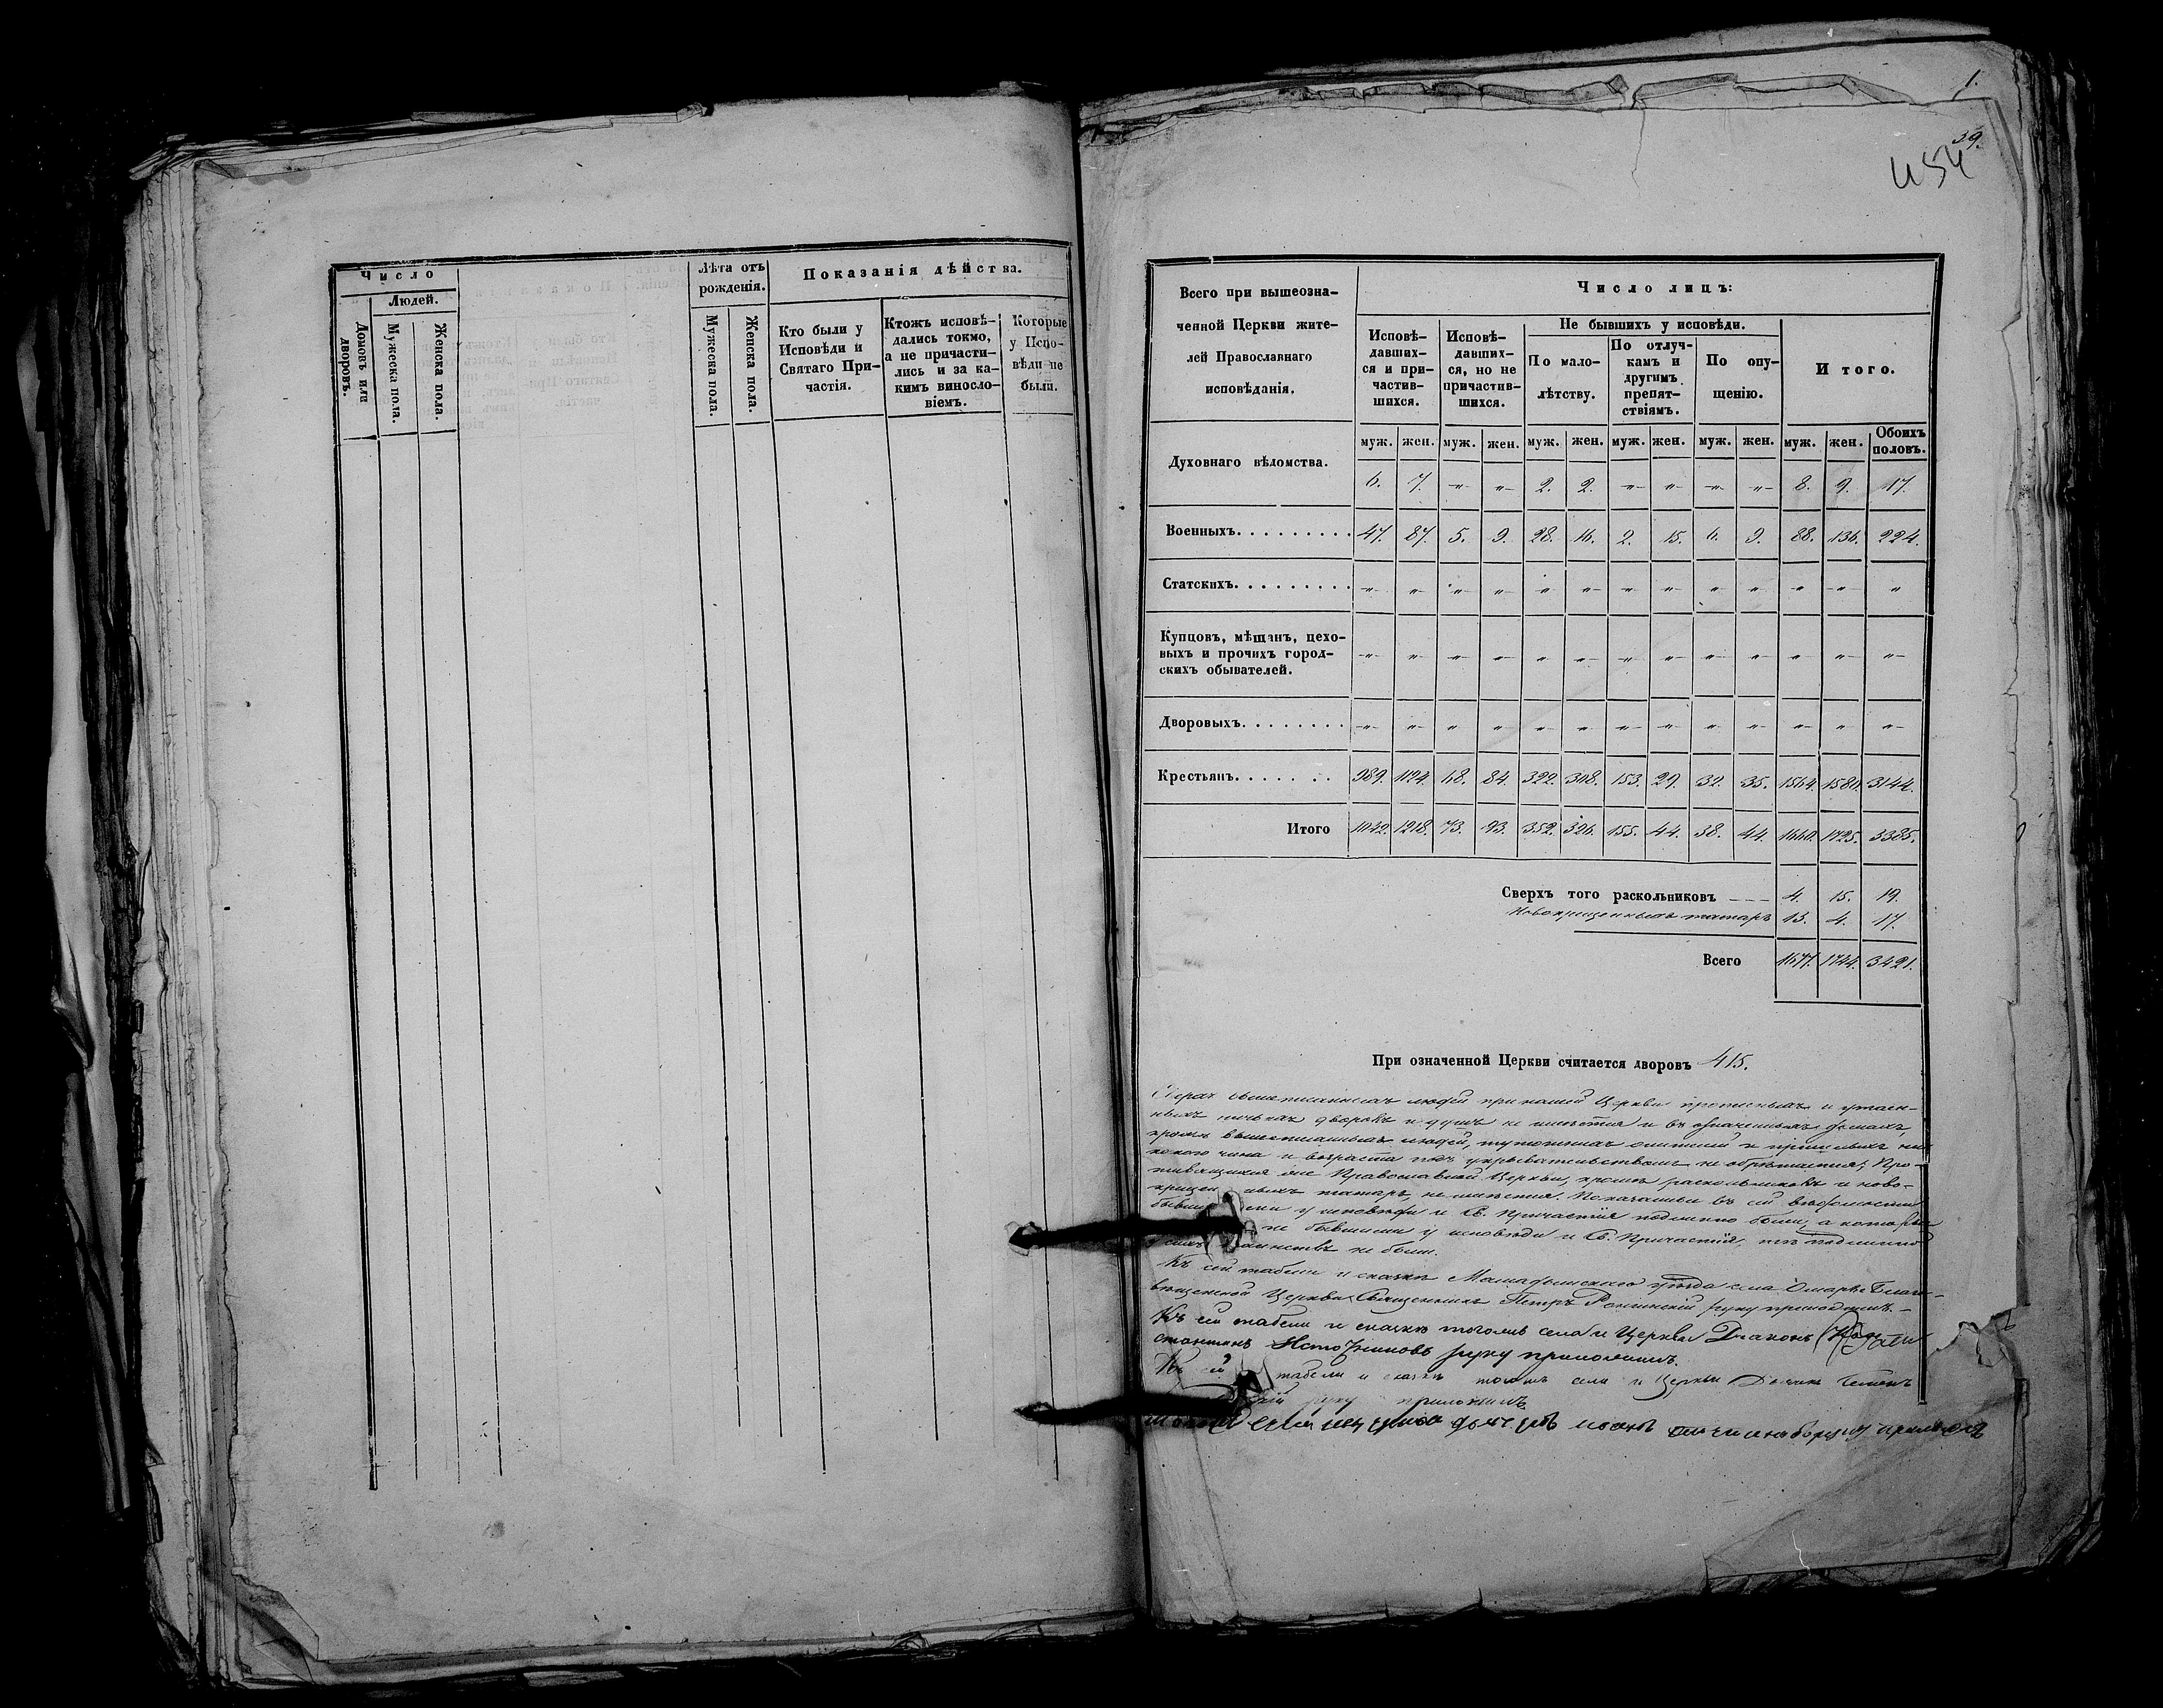 Число
Людей.
Домовъ или дворовъ.
Мужеска пола.
Женска пола.
Лѣта отъ рожденія.
Мужеска пола.
Женска пола.
Показанія дѣйства.
Кто были у Исповѣди и Святаго Причастія.
Ктожъ исповѣ-
дались токмо,
а не причасти-
лись и за ка-
кимъ виносло-
віемъ.
Которые
у Испо-
вѣди не
были.
1.
39.
454
Всего при вышеозна-
ченной Церкви жите-
лей Православнаго
исповѣданія.
Число лицъ:
Исповѣ-
давших-
ся и при-
частив-
шихся.
Исповѣ-
давших-
ся, но не
причастив-
шихся.
Не бывшихъ у исповѣди.
По мало-
лѣтству.
По отлуч-
камъ и
другимъ
препят-
ствіямъ.
По опу-
щенію.
Итого.
муж. жен. муж. жен. муж. жен. муж. жен. муж. жен. муж. жен. Обоихъ половъ.
Духовнаго вѣдомства. 6. 7. -„- -„- 2. 2. -„- -„- -„- -„- 8. 9. 17.
Военныхъ. . . . . . . . . 47. 87. 5. 9. 28. 16. 2. 15. 6. 9. 88. 136. 224.
Статскихъ. . . . . . . . . -„- -„- -„- -„- -„- -„- -„- -„- -„- -„- -„- -„- „
Купцовъ, мѣщанъ, цехо-
выхъ и прочихъ город-
скихъ обывателей. -„- -„- -„- -„- -„- -„- -„- -„- -„- -„- -„- -„- -„-
Дворовыхъ. . . . . . . . -„- -„- -„- -„- -„- -„- -„- -„- -„- -„- -„- -„- -„-
Крестьянъ. . . . . . . . 989. 1124. 68. 84. 322. 308. 153. 29. 32. 35. 1564. 1580. 3144.
Итого 1042. 1218. 73. 93. 352. 326. 155. 44. 38. 44. 1660. 1725. 3385.
Сверхъ того раскольниковъ 4. 15. 19.
Новокрещенныхъ татаръ 13. 4. 17.
Всего 1677. 1744. 3421.
При означенной Церкви считается дворовъ 415.
Сверхъ вышеписанныхъ людей при нашей Церкви прописныхъ и утаен-
ныхъ дворовъ и душъ не имѣется и въ означенныхъ домахъ,
кромѣ вышеписанныхъ людей, и пришлыхъ ни-
какого чина и возраста подъ укрывательствомъ не обрѣтается; Про-
тивящихся же Православной Церкви, кромѣ раскольниковъ и ново-
крещенныхъ татаръ, не имѣется. Показанные въ сей вѣдомости
у исповѣди и Св. Причастія подлинно были, а которые
не бывшими у исповѣди и Св. Причастія, тѣ подлинно
не были.
Къ сей табели и сказкѣ Мамадышскаго уѣзда села Омарь Благо-
вѣщенской Церкви Священникъ Петръ руку приложилъ.
Къ сей табели и сказкѣ тогожъ села и Церкви Діаконъ
Источниковъ руку приложилъ.
Къ сей табели и сказкѣ тогожъ села и Церкви Дьячекъ Семенъ
руку приложилъ